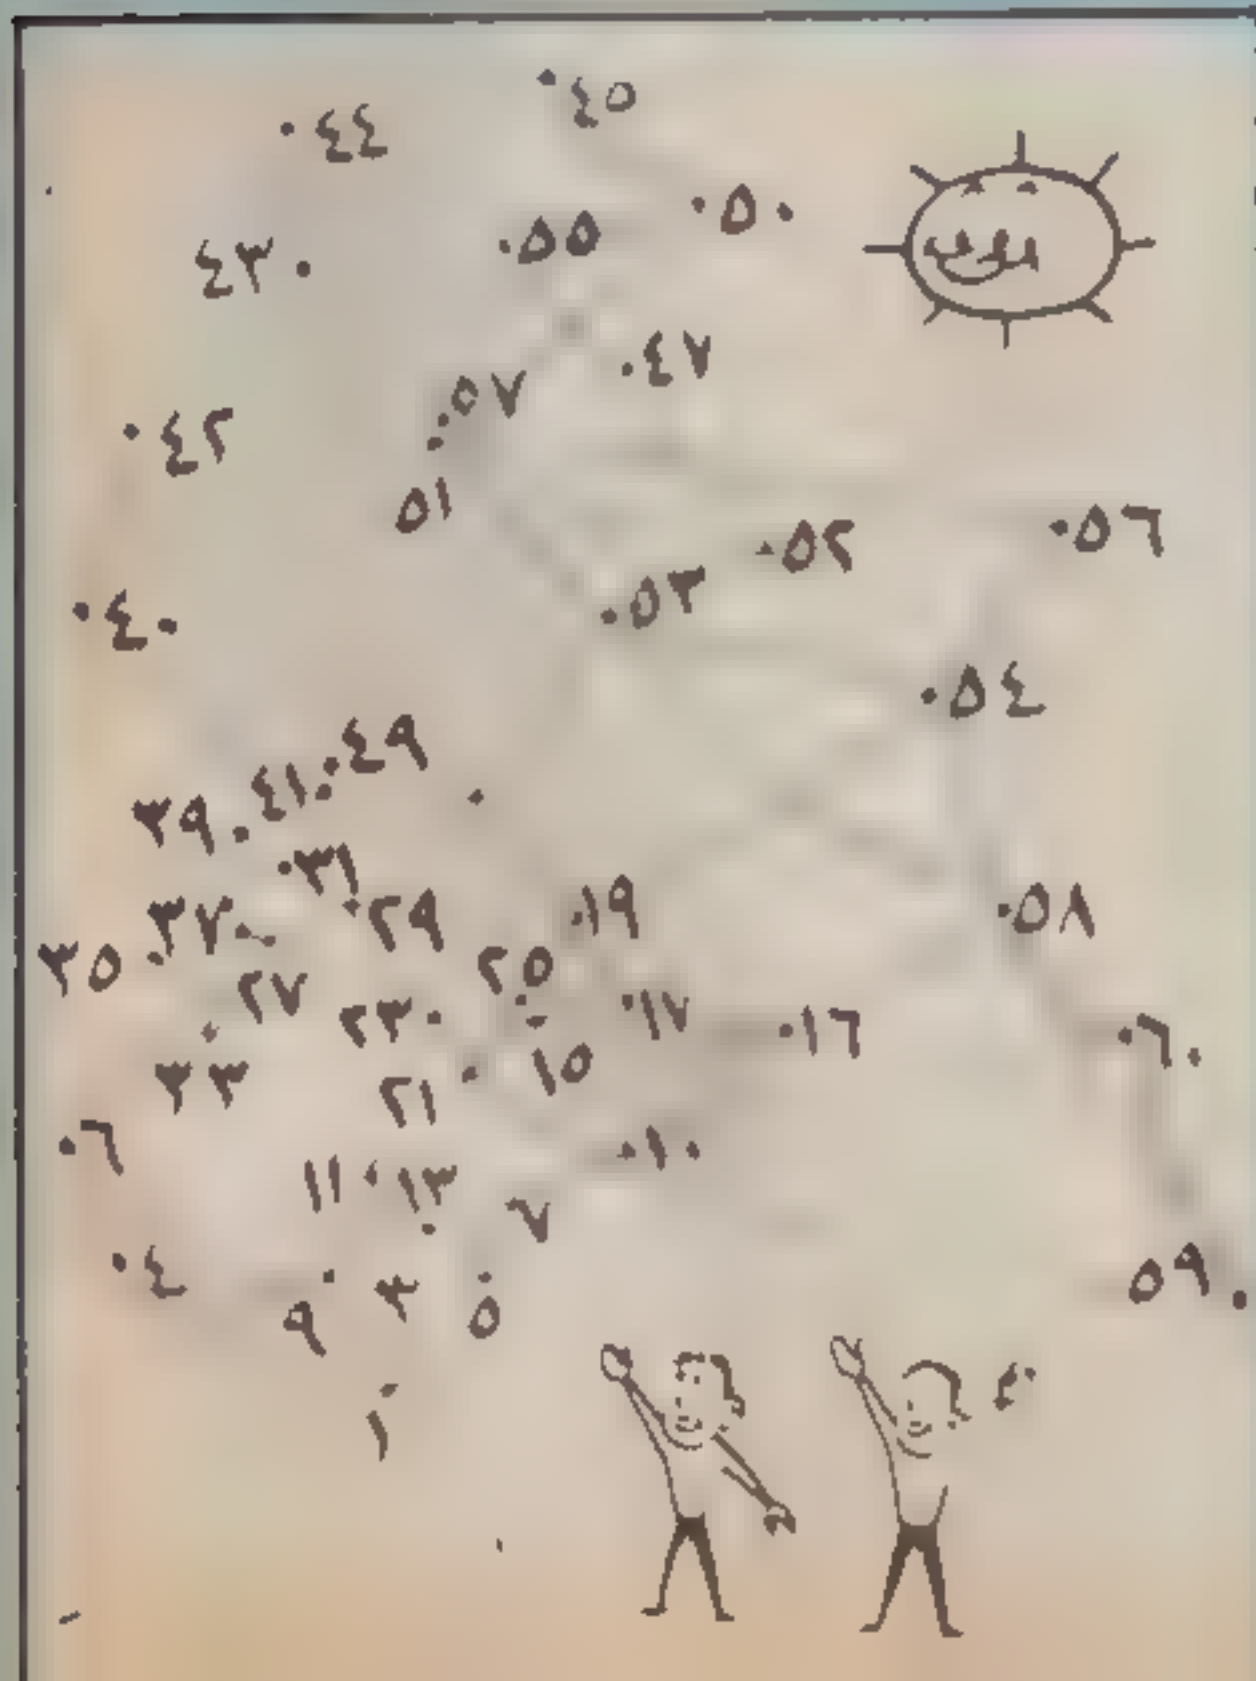 ٤٥
٤٤
٥٠
٥٥
٤٣
٤٧
٥٧
٤٢
٥١
٥٢
٥٦
٥٣
٤٠
٥٤
٤٩
٤١
٣٩
٣١
٢٩
١٩
٥٨
٣٧
٣٥
٢٥
٢٧
٢٣
١٧
١٦
٦٠
٣٣
٢١
١٥
٦
١٠
١١
١٣
٧
٤
٥٩
٩
٣
٥
١